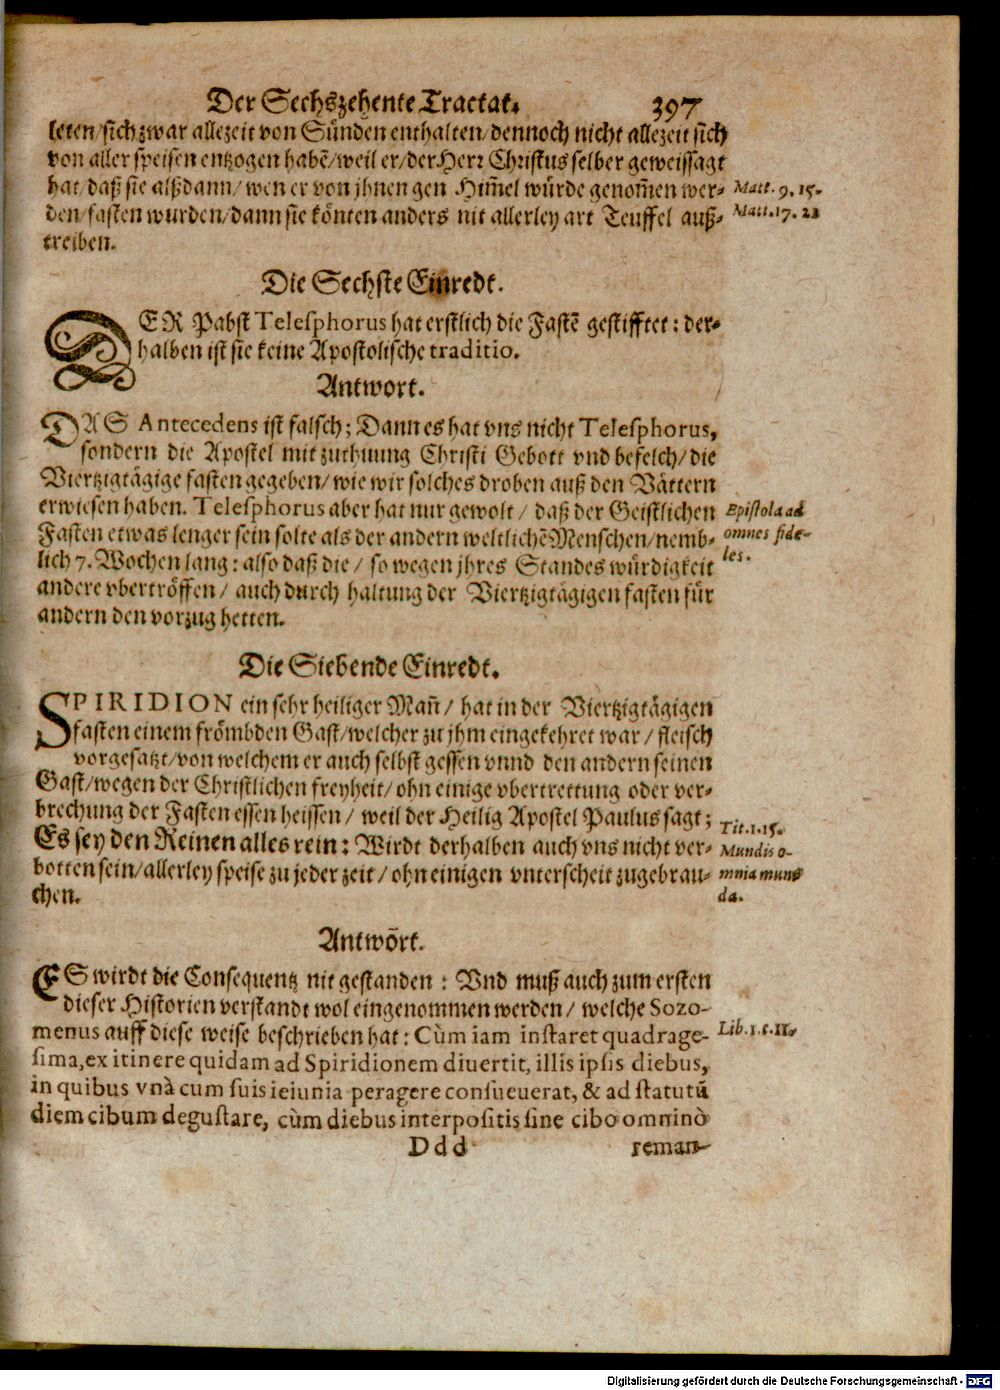 Der Sechszehente Tractat. 397
leten/sich zwar allezeit von Sünden enthalten/dennoch nicht allezeit sich
von aller speisen entzogen habē/weil er/der Herr Christus selber geweissagt
hat/daß sie alßdann/wen er von jhnen gen Him̄el würde genom̄en wer-
Matt. 9. 15.
den/fasten wurden/dann sie könten anders nit allerley art Teuffel auß-
Matt. 17. 21
treiben.
Die Sechste Einredt.
DER Pabst Telesphorus hat erstlich die Fastē gestifftet: der-
halben ist sie keine Apostolische traditio.
Antwort.
DAS Antecedens ist falsch; Dann es hat vns nicht Telesphorus,
sondern die Apostel mit zuthuung Christi Gebott vnd befelch/die
Viertzigtägige fasten gegeben/wie wir solches droben auß den Vättern
erwiesen haben. Telesphorus aber hat nur gewolt/ daß der Geistlichen
Epistola ad
Fasten etwas lenger sein solte als der andern weltlichē Menschen/nemb-
omnes fide-
lich 7. Wochen lang: also daß die/ so wegen jhres Standes würdigkeit
les.
andere vbertröffen/ auch durch haltung der Viertzigtägigen fasten für
andern den vorzug hetten.
Die Siebende Einredt.
SPIRIDION ein sehr heiliger Man̄/ hat in der Viertzigtägigen
fasten einem frömbden Gast/welcher zu jhm eingekehret war/ fleisch
vorgesatzt/von welchem er auch selbst gessen vnnd den andern seinen
Gast/wegen der Christlichen freyheit/ohn einige vbertrettung oder ver-
brechung der Fasten essen heissen/ weil der Heilig Apostel Paulus sagt;
Tit. 1. 15.
Es sey den Reinen alles rein: Wirdt derhalben auch vns nicht ver-
Mundis o-
botten sein/allerley speise zu jeder zeit/ohn einigen vnterscheit zugebrau-
mnia mun-
chen.
da.
Antwort.
ES wirdt die Consequentz nit gestanden: Vnd muß auch zum ersten
dieser Historien verstandt wol eingenommen werden/ welche Sozo-
menus auff diese weise beschrieben hat: Cùm iam instaret quadrage-
Lib. 1. c. 11.
sima, ex itinere quidam ad Spiridionem diuertit, illis ipsis diebus,
in quibus vnà cum suis ieiunia peragere consueuerat, & ad statutū
diem cibum degustare, cùm diebus interpositis sine cibo omninò
Ddd reman-
Digitalisierung gefördert durch die Deutsche Forschungsgemeinschaft - DFG